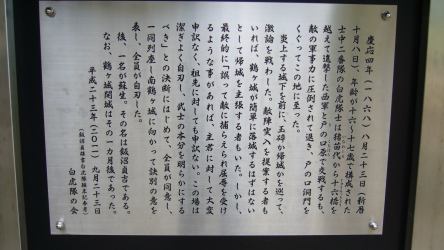 慶応四年(一八六八)八月二十三日(新暦
十月八日)、年齢が十六〜十七歳で構成された
士中二番隊の白虎隊士は猪苗代から十六橋を
越えて進撃した西軍と戸の口原で交戦するも、
敵の軍事力に圧倒されて退き、戸の口洞門を
くぐってこの地に至った。
炎上する城下を前に、玉砕か帰城かを巡って、
激論を戦わした。敵陣突入を提案する者も
いれば、鶴ヶ城が簡単に落城するはずはない
として帰城を主張する者もいた。しかし、
最終的に「誤って敵に捕らえられ屈辱を受け
るような事があれば、主君に対して大変
申訳なく、祖先に対しても申訳ない。この場は
潔ぎよく自刃し、武士の本分を明らかにする
べき」との決断にはじめて、全員が同意し、
一同列座し南鶴ヶ城に向かって訣別の意を
表し、全員が自刃した。
後、一名が蘇生。その名は飯沼貞吉である。
なお、鶴ヶ城開城はその一カ月後であった。
平成二十三年(二〇一一)九月二十三日
白虎隊の会